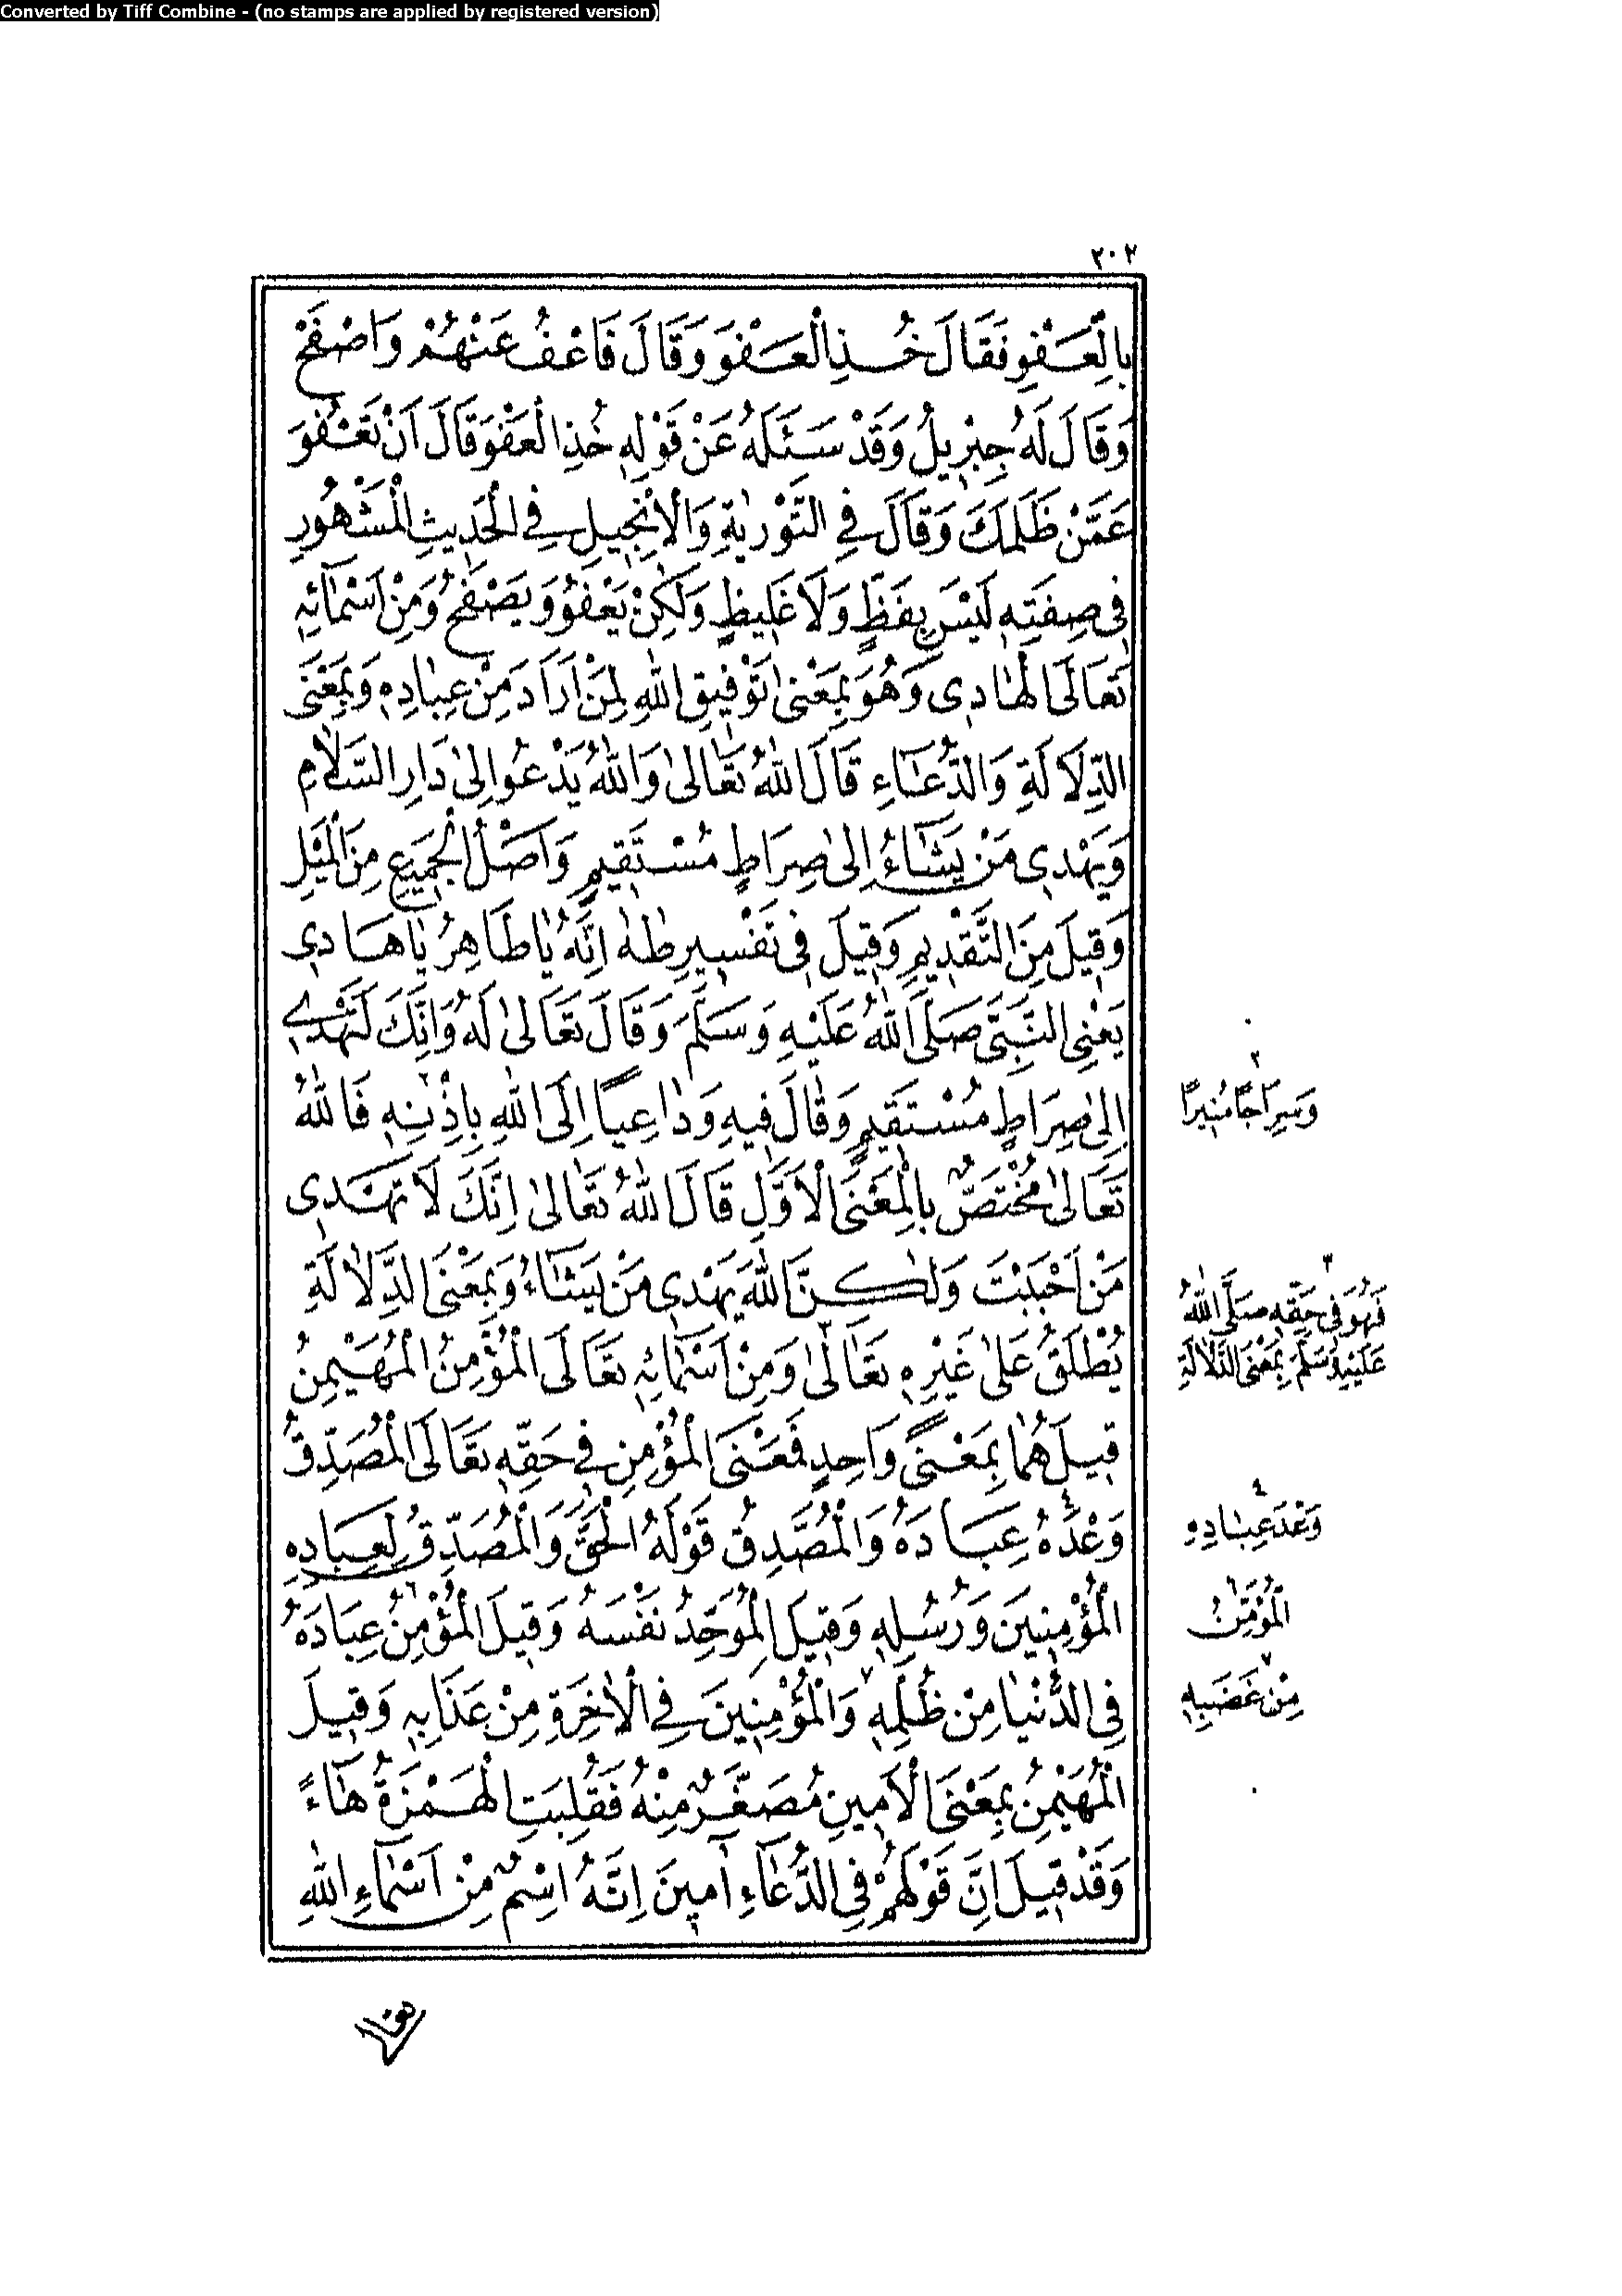 Converted by Tiff Combine - (no stamps are applied by registered version)
٢٠٢
بِالْعَفْوِ فَقَالَ خُذِ الْعَفْوَ وَقَالَ فَاعْفُ عَنْهُمْ وَاصْفَحْ
وَقَالَ لَهُ جِبْرِيلُ وَقَدْ سَئَلَهُ عَنْ قَوْلِهِ خُذِ الْعَفْوَ قَالَ اَنْ تَعْفُوَ
عَمَّنْ ظَلَمَكَ وَقَالَ فِي التَّوْرٰيةِ وَالْاِنْجِيلِ فِي الْحَدِيثِ الْمَشْهُورِ
فِي صِفَتِهِ لَيْسَ بِفَظٍّ وَلَا غَلِيظٍ وَلٰكِنْ يَعْفُو وَيَصْفَحُ وَمِنْ اَسْمَائِهِ
تَعَالَى الْهَادِى وَهُوَ بِمَعْنٰى تَوْفِيقِ اللّٰهِ لِمَنْ اَرَادَ مِنْ عِبَادِهِ وَبِمَعْنَى
الدِّلَالَةِ وَالدُّعَاءِ قَالَ اللّٰهُ تَعَالٰى وَاللّٰهُ يَدْعُو اِلٰى دَارِ السَّلَامِ
وَيَهْدِى مَنْ يَشَاءُ اِلٰى صِرَاطٍ مُسْتَقِيمٍ وَاَصْلُ الْجَمِيعِ مِنَ الْمَيْلِ
وَقِيلَ مِنَ التَّقْدِيمِ وَقِيلَ فِي تَفْسِيرِ طٰهٰ اِنَّهُ يَا طَاهِرُ يَا هَادِى
يَعْنِى النَّبِىَّ صَلَّى اللّٰهُ عَلَيْهِ وَسَلَّمَ وَقَالَ تَعَالٰى لَهُ وَاِنَّكَ لَتَهْدِى
اِلٰى صِرَاطٍ مُسْتَقِيمٍ وَقَالَ فِيهِ وَدَاعِيًا اِلَى اللّٰهِ بِاِذْنِهِ ٢ فَاللّٰهُ
تَعَالٰى مُخْتَصٌّ بِالْمَعْنَى الْاَوَّلِ قَالَ اللّٰهُ تَعَالٰى اِنَّكَ لَا تَهْدِى
مَنْ اَحْبَبْتَ وَلٰكِنَّ اللّٰهَ يَهْدِى مَنْ يَشَاءُ وَبِمَعْنَى الدِّلَالَةِ
يُطْلَقُ عَلٰى غَيْرِهِ تَعَالٰى ٣ وَمِنْ اَسْمَائِهِ تَعَالَى الْمُؤْمِنُ الْمُهَيْمِنُ
قِيلَ هُمَا بِمَعْنًى وَاحِدٍ فَمَعْنَى الْمُؤْمِنِ فِي حَقِّهِ تَعَالَى الْمُصَدِّقُ
وَعْدَهُ ٤ عِبَادَهُ وَالْمُصَدِّقُ قَوْلَهُ الْحَقَّ وَالْمُصَدِّقُ لِعِبَادِهِ
الْمُؤْمِنِينَ وَرُسُلِهِ وَقِيلَ الْمُوَحِّدُ نَفْسَهُ وَقِيلَ الْمُؤْمِنُ ٦ عِبَادَهُ
فِي الدُّنْيَا مِنْ ظُلْمِهِ ٧ وَالْمُؤْمِنِينَ فِي الْاٰخِرَةِ مِنْ عَذَابِهِ وَقِيلَ
الْمُهَيْمِنُ بِمَعْنَى الْاَمِينِ مُصَغَّرٌ مِنْهُ فَقُلِبَتِ الْهَمْزَةُ هَاءً
وَقَدْ قِيلَ اِنَّ قَوْلَهُمْ فِي الدُّعَاءِ اٰمِينَ اِنَّهُ اسْمٌ مِنْ اَسْمَاءِ اللّٰهِ
٢
وَسِرَاجًا مُنِيرًا
٣
فَهُوَ فِي حَقِّهِ صَلَّى اللّٰهُ
عَلَيْهِ وَسَلَّمَ بِمَعْنَى الدَّلَالَةِ
٤
وَعْدَ عِبَادِهِ
٦
الْمُؤَمِّنُ
٧
مِنْ غَضَبِهِ